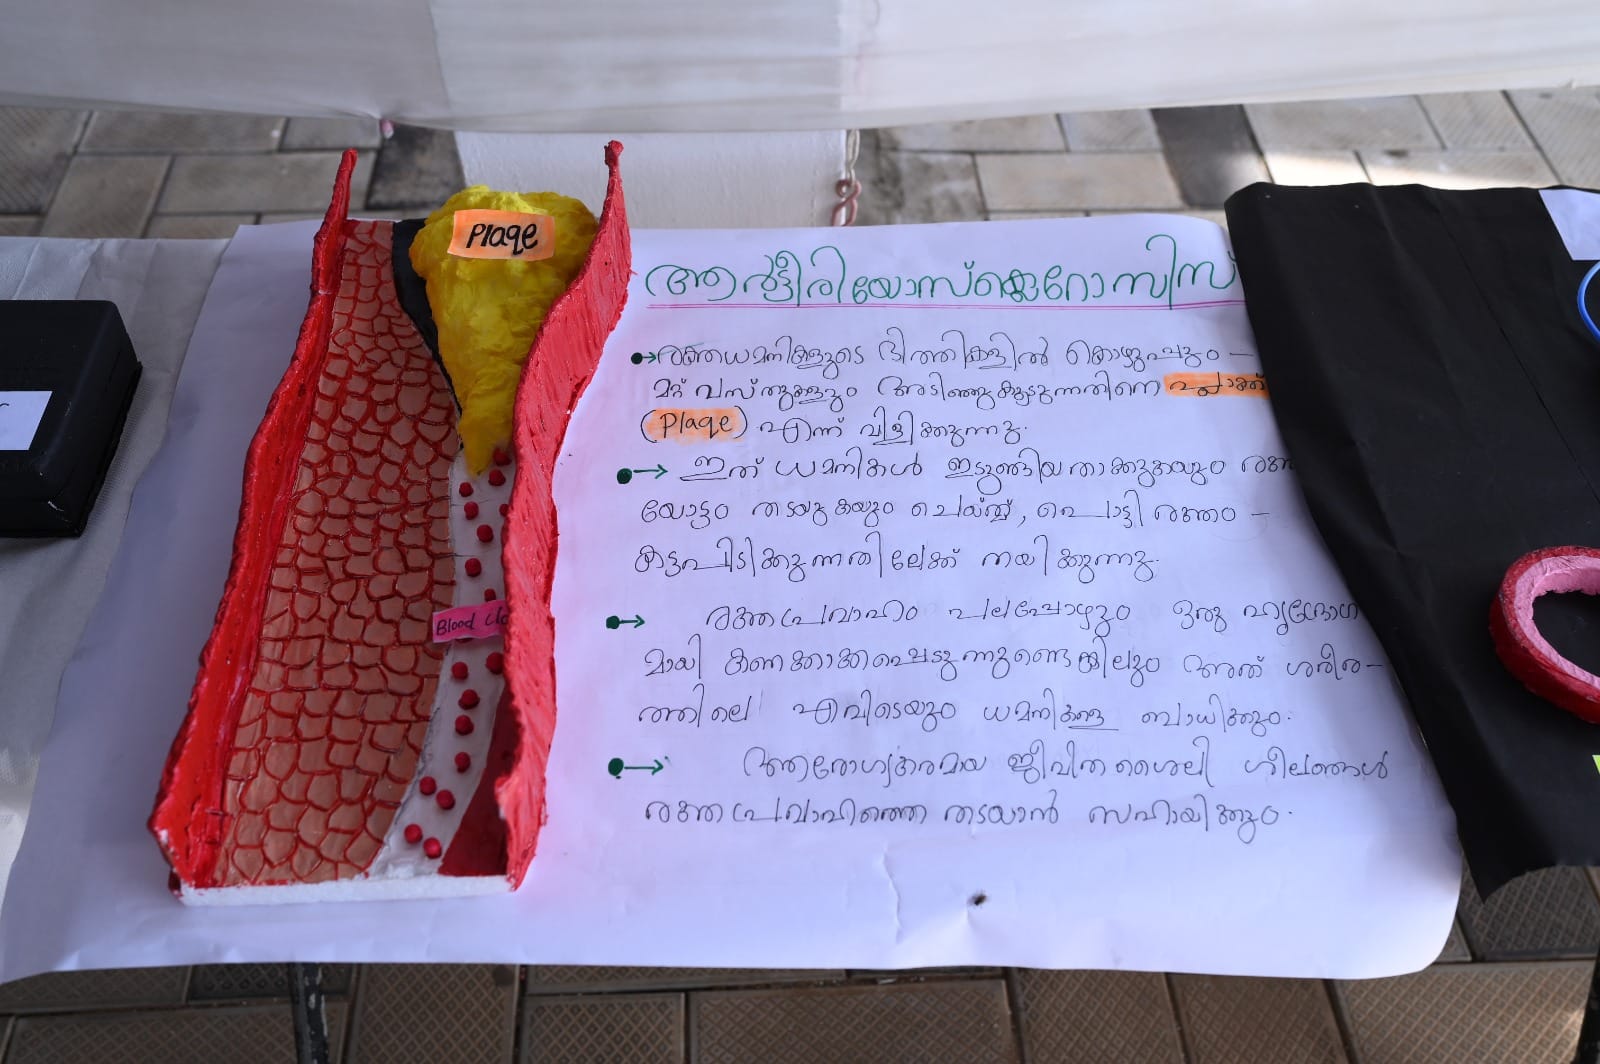 Plaqe
Blood Clo
ആർട്ടീരിയോസ്ക്ലെറോസിസ്
രക്തധമനികളുടെ ഭിത്തികളിൽ കൊഴുപ്പും –
മറ്റ് വസ്തുക്കളും അടിഞ്ഞുകൂടുന്നതിനെ പ്ലാക്ക്
(Plaqe) എന്ന് വിളിക്കുന്നു.
ഇത് ധമനികൾ ഇടുങ്ങിയതാക്കുകയും രക്ത
യോട്ടം തടയുകയും ചെയ്ത്, പൊട്ടി രക്തം –
കട്ടപിടിക്കുന്നതിലേക്ക് നയിക്കുന്നു.
രക്തപ്രവാഹം പലപ്പോഴും ഒരു ഹൃദ്രോഗ
മായി കണക്കാക്കപ്പെടുന്നുണ്ടെങ്കിലും അത് ശരീര–
ത്തിലെ എവിടെയും ധമനികളെ ബാധിക്കും.
ആരോഗ്യകരമായ ജീവിത ശൈലി ശീലങ്ങൾ
രക്തപ്രവാഹത്തെ തടയാൻ സഹായിക്കും.